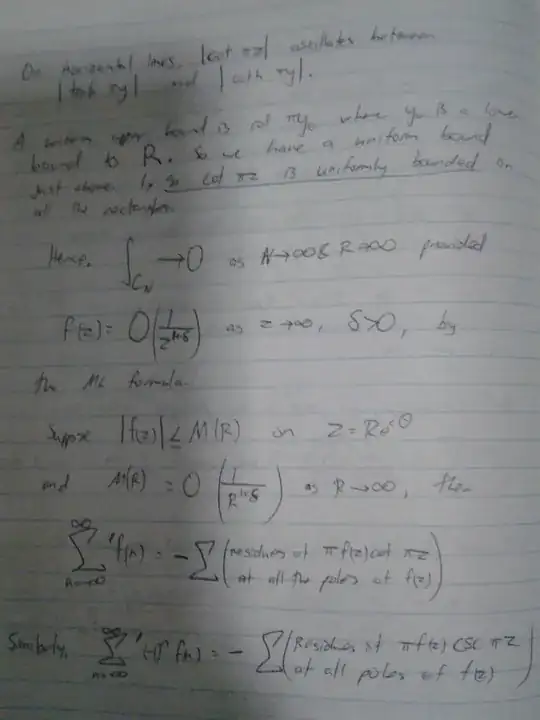 On Horizontal lines, |cot πz| oscillates between
|tanh πy| and |coth πy|.
A uniform upper bound is πy₀ where y₀ is a lower
bound to R. So we have a uniform bound
just above 1. So cot πz is uniformly bounded on
all the rectangles.
Hence, ∫_{C_N} → 0 as N→∞ & R→∞ provided
f(z) = O(1/z^{1+δ}) as z→∞, δ>0, by
the ML formula.
Suppose |f(z)| ≤ M(R) on z = Re^{iθ}
and M(R) = O(1/R^{1+δ}) as R→∞, then
∑_{n=-∞}^{∞}' f(n) = -∑(residues at πf(z)cot πz
at all the poles of f(z))
Similarly, ∑_{n=-∞}^{∞}' (-1)^n f(n) = -∑(Residues at πf(z) csc πz
at all poles of f(z))